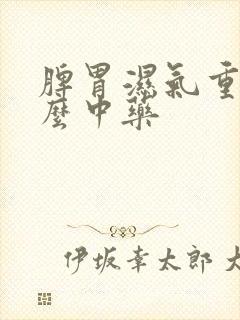 脾胃濕氣重
麼中藥
伊坂幸太郎 大